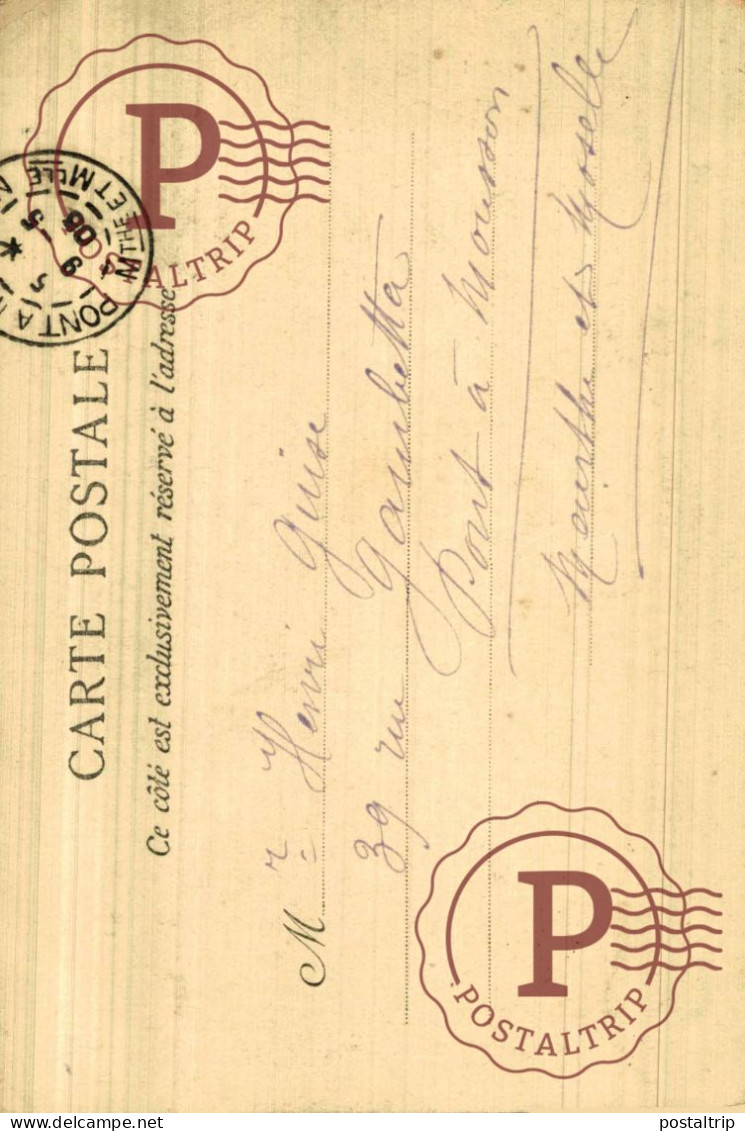 CARTE POSTALE
Ce côté est exclusivement réservé à l'adresse
Mr Henri Guise
39 rue Gambetta
Pont à Mousson
Meurthe et Moselle
PONT A
MTHE ET MLLE
5 -5
05
P
POSTALTRIP
P
POSTALTRIP
Delcampe.net
postaltrip